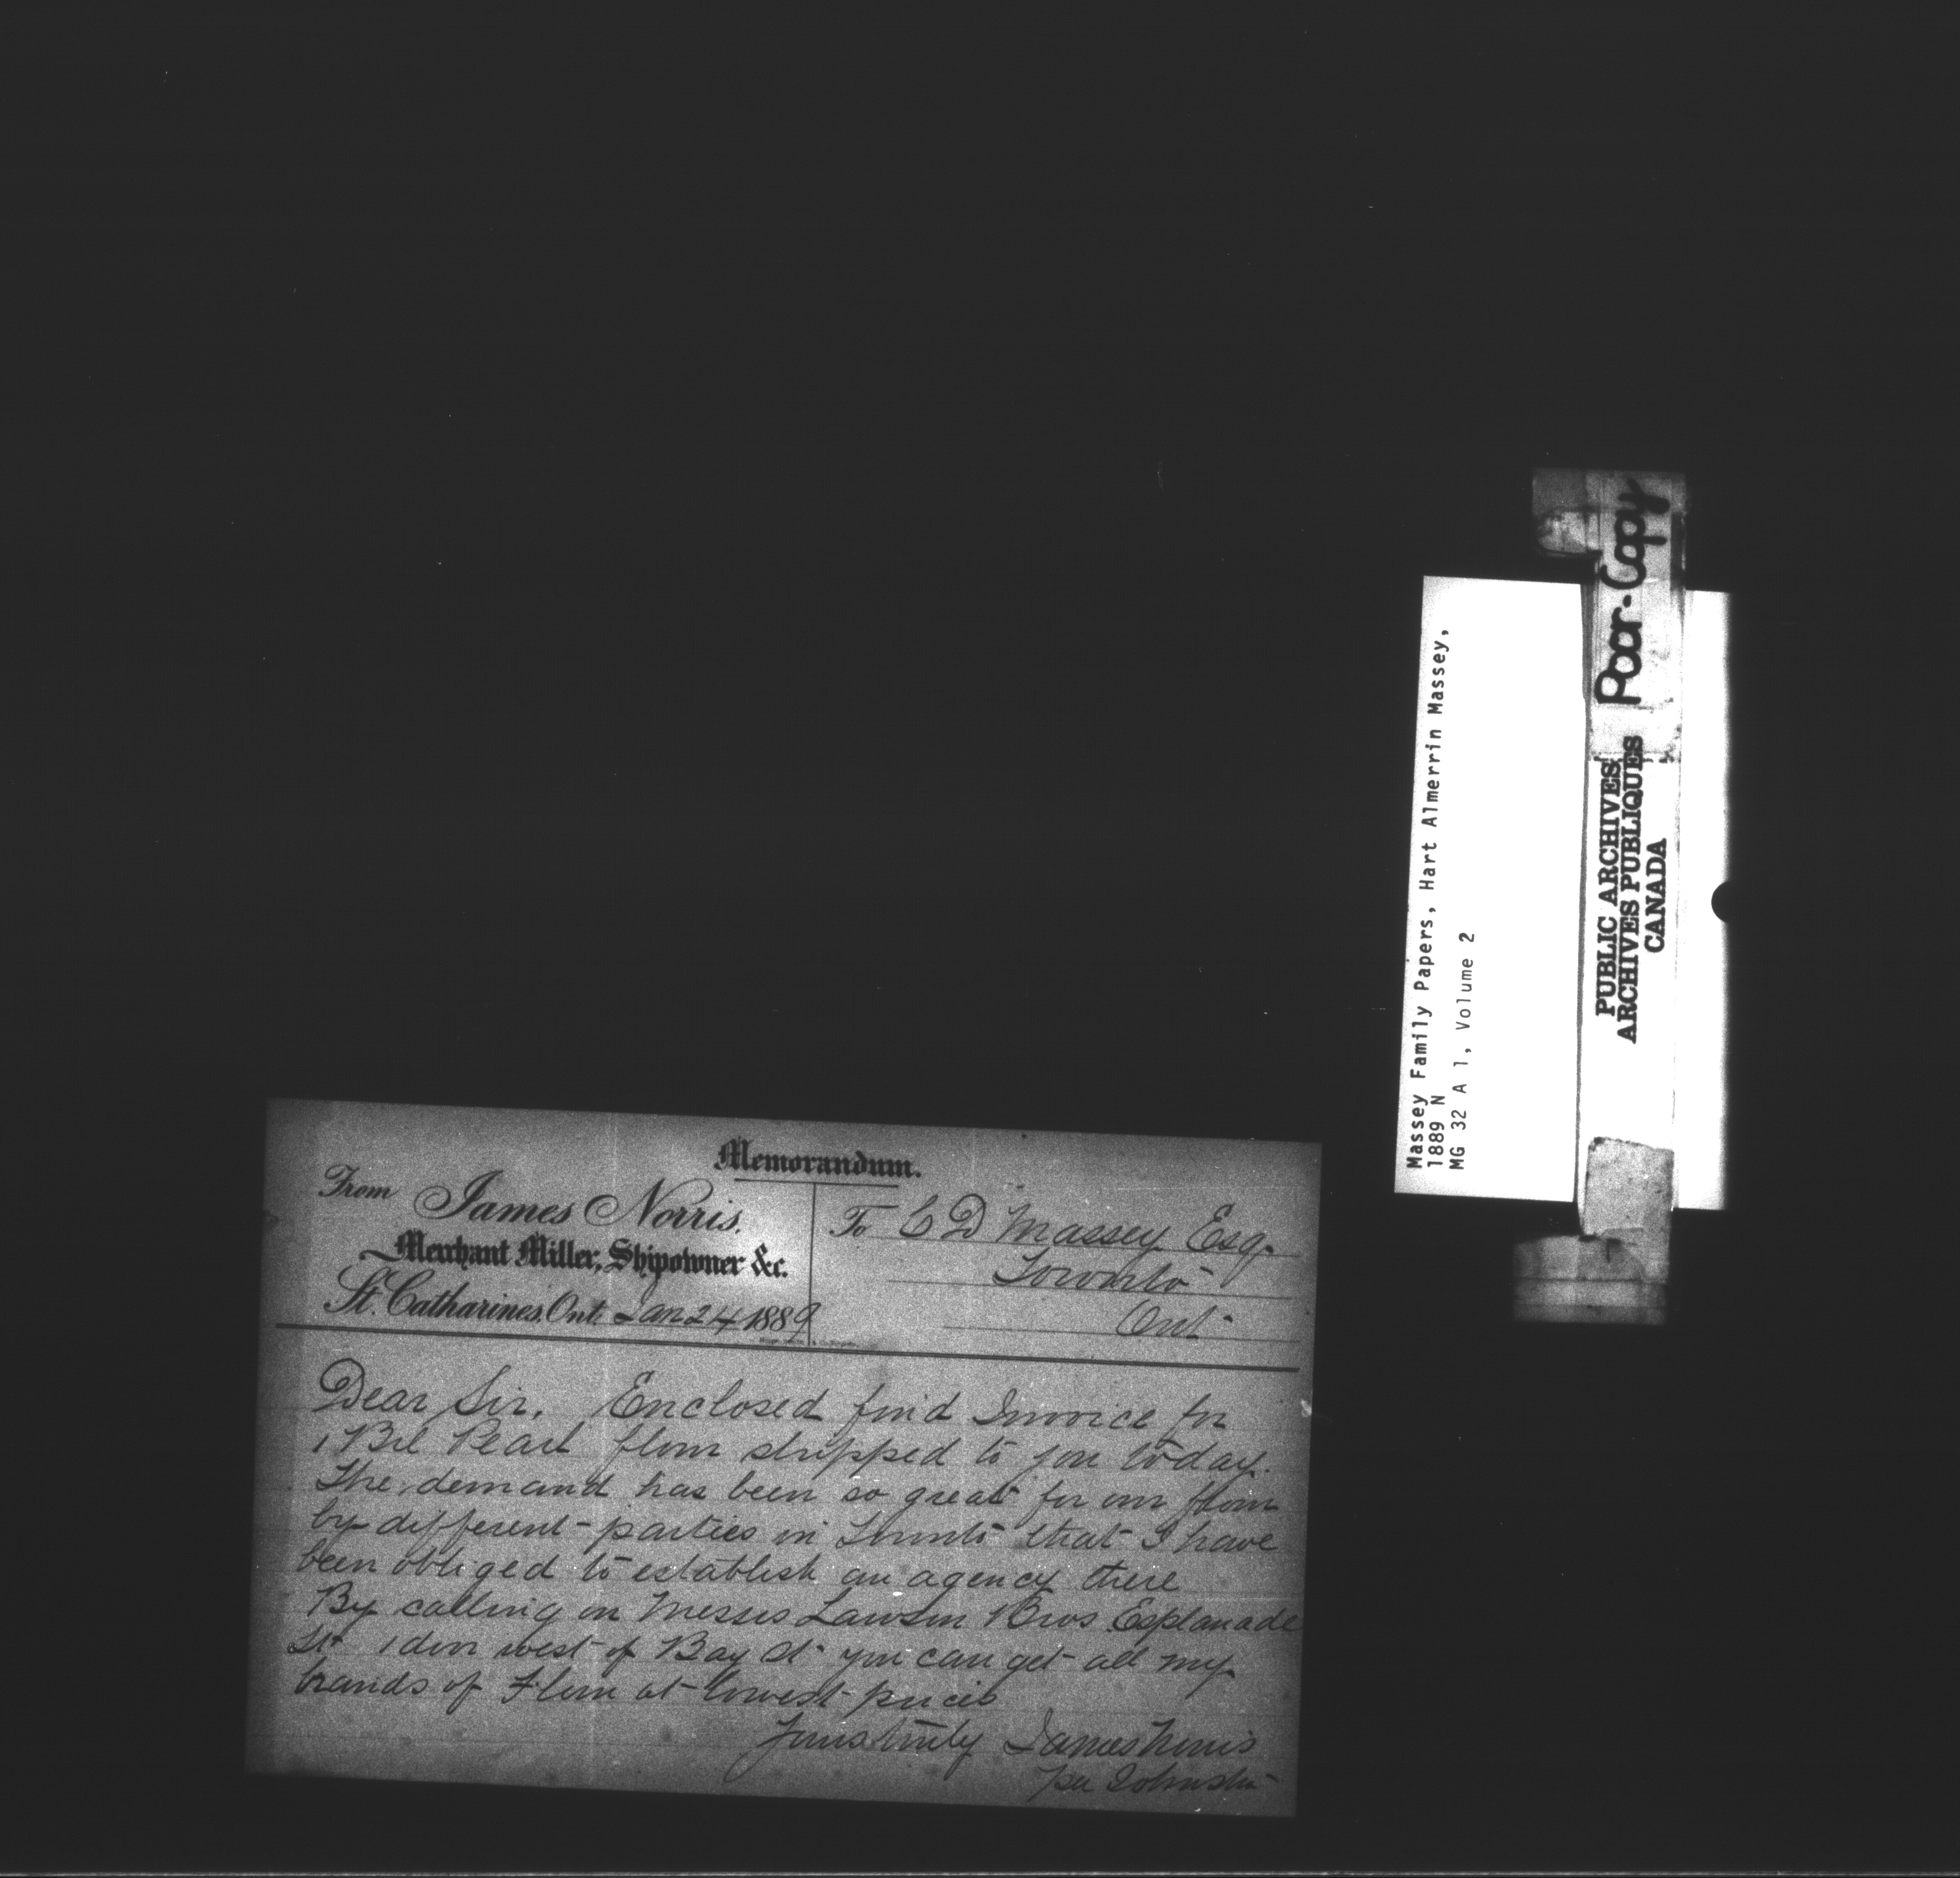 Memorandum.
From James Norris.
Merchant Miller, Shipowner &c.
St. Catharines, Ont. Jan 24 1889
To C D Massey Esq.
Toronto
Ont
Dear Sir, Enclosed find Invoice for
1 Bbl Pearl flour shipped to you today.
The demand has been so great for our flour
by different parties in Toronto that I have
been obliged to establish an agency there
By calling on Messrs Lawson Bros Esplanade
St 1 door west of Bay St you can get all my
brands of Flour at lowest prices
Yours truly James Norris
per Johnston
Massey Family Papers, Hart Almerrin Massey,
1889 N
MG 32 A 1, Volume 2
Poor Copy
PUBLIC ARCHIVES
ARCHIVES PUBLIQUES
CANADA